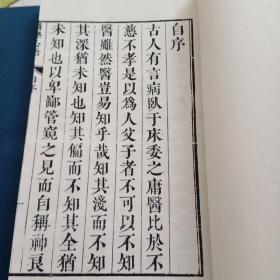 自序
古人有言病臥于床委之庸醫比於不
慈不孝是以為人父子者不可以不知
醫雖然醫豈易知乎哉知其淺而不知
其深猶未知也知其偏而不知其全猶
未知也以卑鄙管窺之見而自稱神良